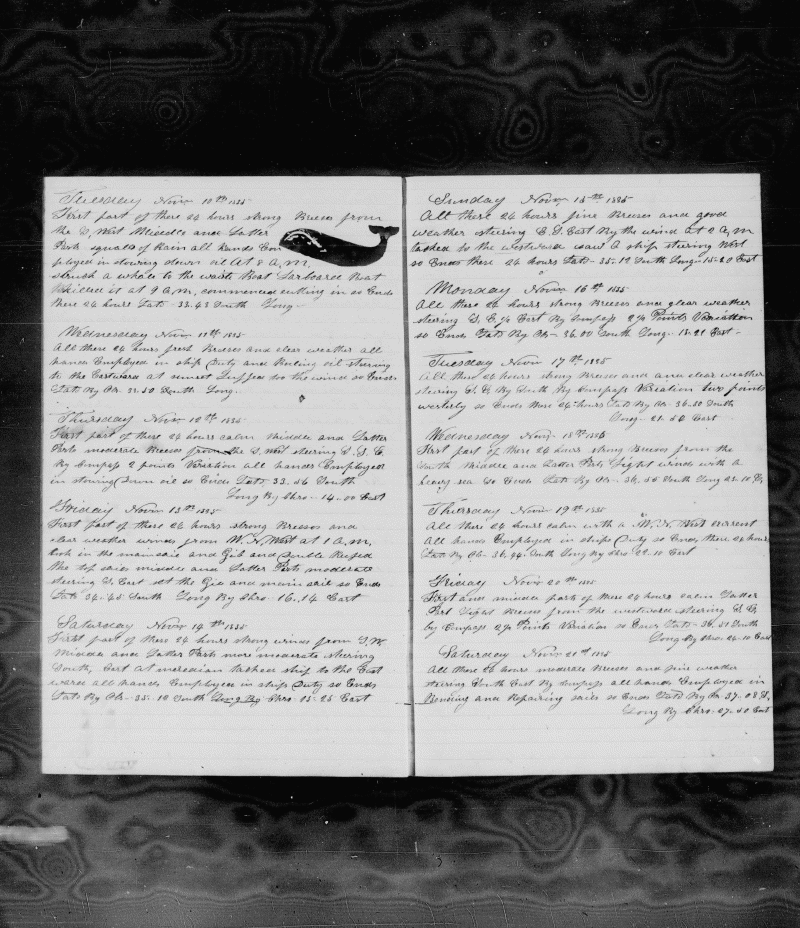 Tuesday Novr 10th 1885
First part of these 24 hours strong Breeses from
the S, West Middle and Latter
Parts squals of Rain all hands Em
ployed in stowing down oil At 8 A,M,
struck a whale to the waist Boat Larboard Boat
Whilled it at 9 A,M, commenced cutting in so Ends
these 24 hours Latd- 33-43 South Long-
Wednesday Novr 11th 1885
All these 24 hours fresh Breeses and clear weather all
hands Employed in ship Duty and Boiling oil steering
to the Eastward at sunset Luffed to the wind so Ends
Latd By Ob- 33-50 South Long.
Thursday Novr 12th 1885
First part of these 24 hours calm Middle and Latter
Parts moderate Breeses from the S. West steering S, S, E,
By Compass 2 points Variation all hands Employed
in stowing Down oil so Ends Latd- 33-56 South
Long By Chro- 14-00 East
Friday Novr 13th 1885
First part of these 24 hours strong Breeses and
clear weather winds from W, N, West at 1 A,M,
took in the mainsail and Gib and Double Reefed
the top sails middle and Latter Parts moderate
steering S East set the Gib and main sail so Ends
Latd 34-45 South Long By Chro- 16,14 East
Saturday Novr 14th 1885
First part of these 24 hours strong winds from S.W.
Middle and Latter Parts more moderate steering
South, East at meredian tacked ship to the East
ward all hands Employed in ships Duty so Ends
Latd By Ob- 35-10 South Long By Chro- 15-25 East
Sunday Novr 15th 1885
All these 24 hours fine Breeses and good
weather steering E, S, East By the wind at 2 A,M
tacked to the westward saw a ship steering West
so Ends these 24 hours Latd- 35-19 South Long- 15-20 East
Monday Novr 16th 1885
All these 24 hours strong Breeses and clear weather
steering S, E, 1/2 East By Compass 2 1/2 Points Variation
so Ends Latd By Ob- 36.00 South Long- 18-29 East-
Tuesday Novr 17th 1885
All these 24 hours strong Breeses and clear weather
steering S, E, By South By Compass Variation two points
westerly so Ends these 24 hours Latd By Ob- 36-50 South
Long- 21-50 East
Wednesday Novr 18th 1885
First part of these 24 hours strong Breeses from the
South Middle and Latter Parts Light winds with a
heavy sea so Ends Latd By Ob- 36,55 South Long 23-10 E,
Thursday Novr 19th 1885
All these 24 hours calm with a W, N, West current
all hands Employed in ships Duty so Ends these 24 hours
Latd By Ob- 36,44 South Long By Chro 22-10 East
Friday Novr 20th 1885
First and middle parts of these 24 hours calm Latter
Part Light Breeses from the westward steering S E,
by Compass 2 1/2 Points Variation so Ends Latd- 36-51 South
Long By Chro 24-10 East
Saturday Novr 21st 1885
All these 24 hours moderate Breeses and fine weather
steering South East By Compass all hands Employed in
Bending and Repairing sails so Ends Latd By Ob 37-08 S,
Long By Chro- 27-50 East